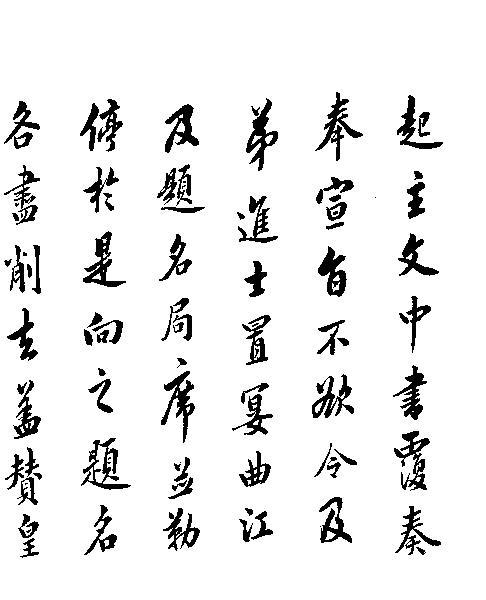 起主文中書覆奏
奉宣旨不欲令及
弟進士置宴曲江
及題名局席並勒
停於是向之題名
各盡削去盖賛皇